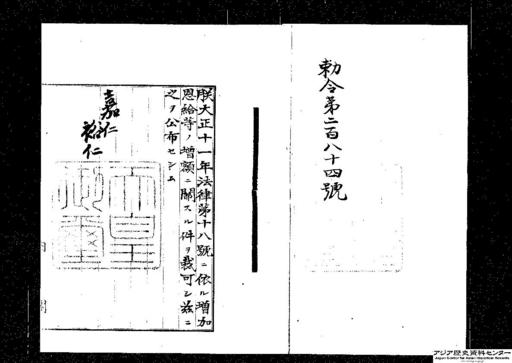 勅令第二百八十四號
朕大正十一年法律第十八號ニ依ル増加
恩給等ノ増額ニ關スル件ヲ裁可シ茲ニ
之ヲ公布セシム
嘉仁
裕仁
天皇御璽
内閣
アジア歴史資料センター
Japan Center for Asian Historical Records